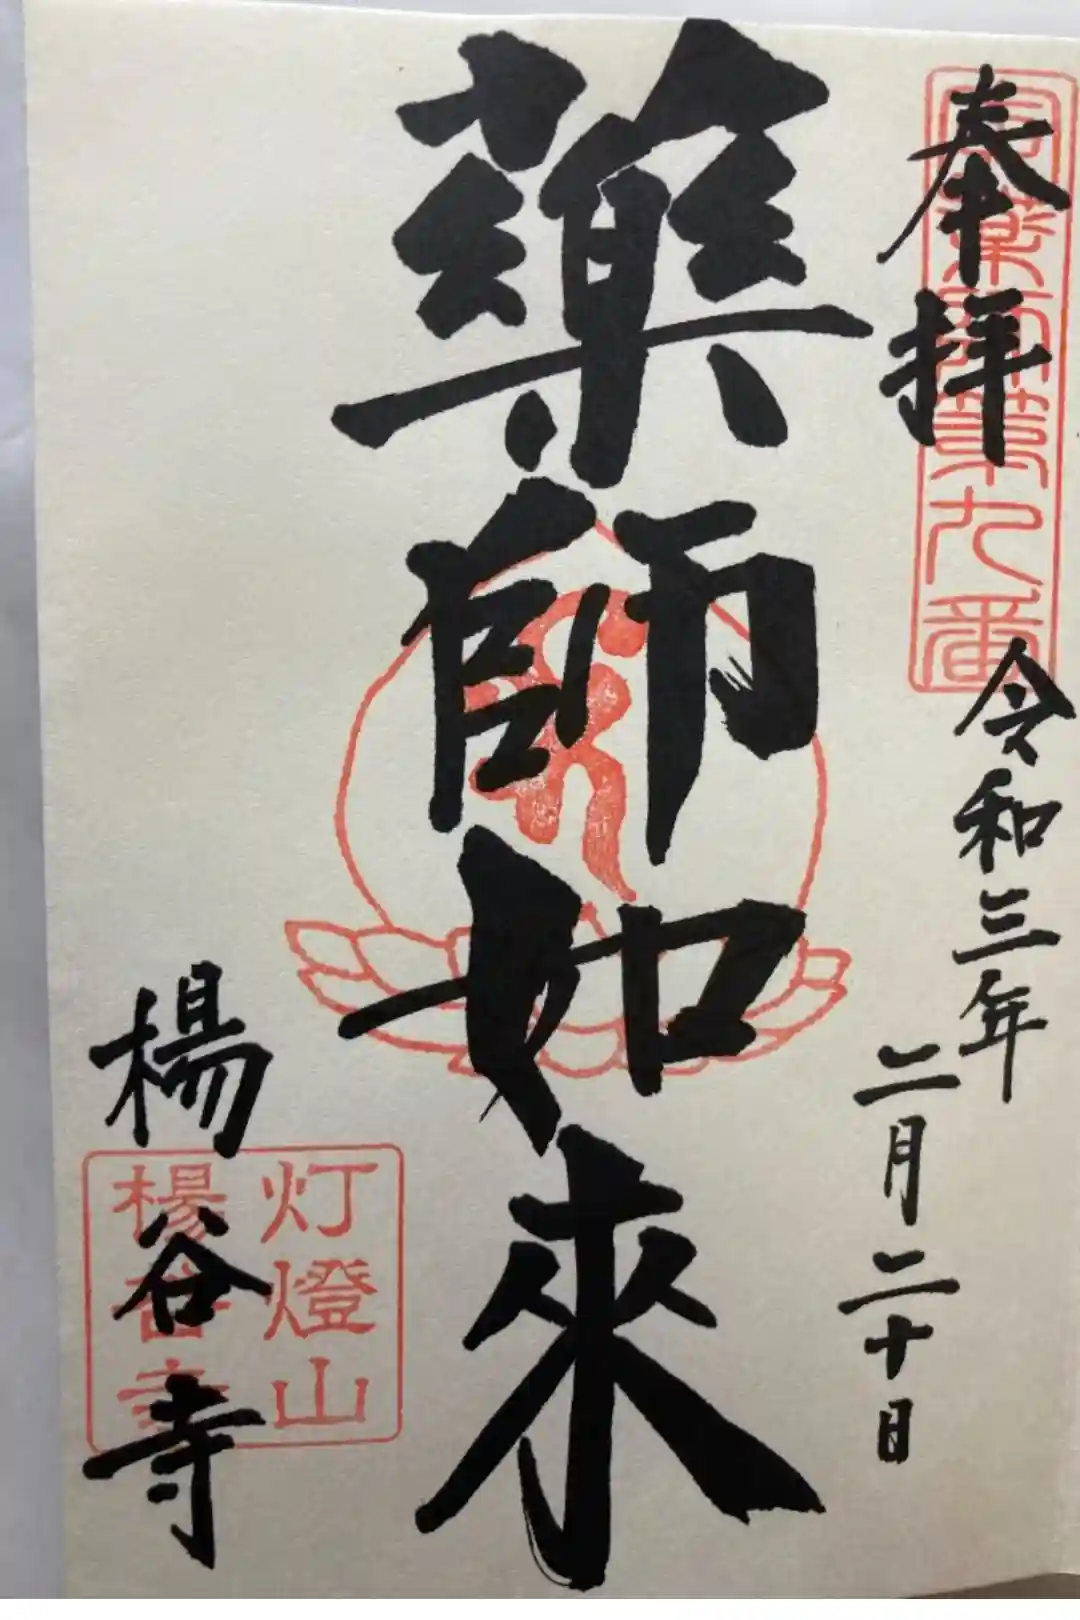 奉拝
薬師第九番
令和三年
二月二十日
薬師如來
灯燈山
楊谷寺
楊谷寺